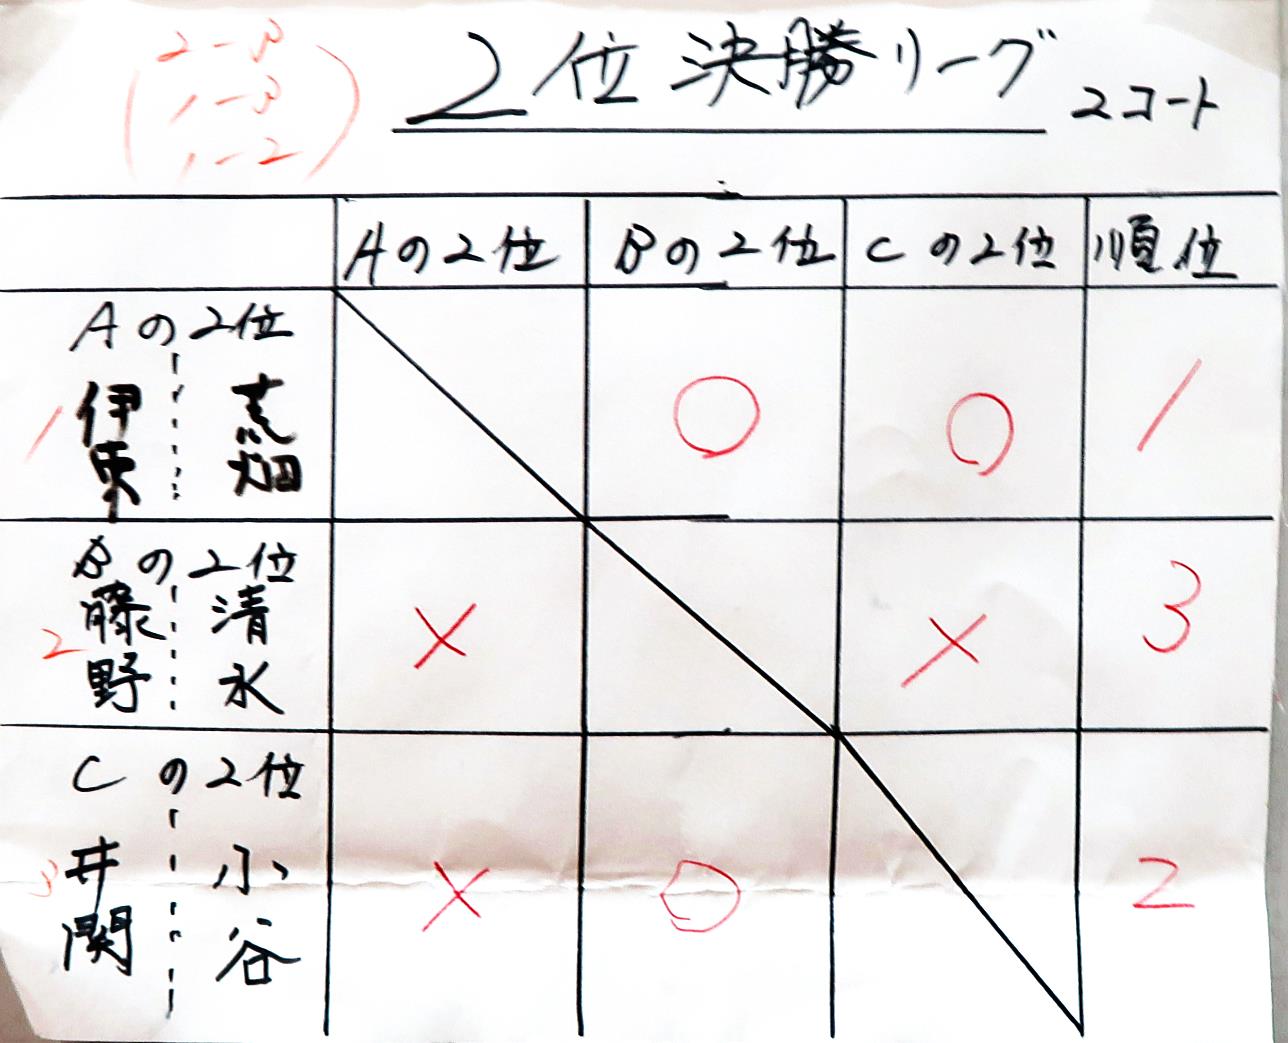 2-3
1-3
1-2
2位決勝リーグ
2コート
Aの2位 Bの2位 Cの2位 順位
Aの2位
1 伊東 荒畑 ○ ○ 1
Bの2位
2 藤野 清水 × × 3
Cの2位
3 井関 小谷 × ○ 2